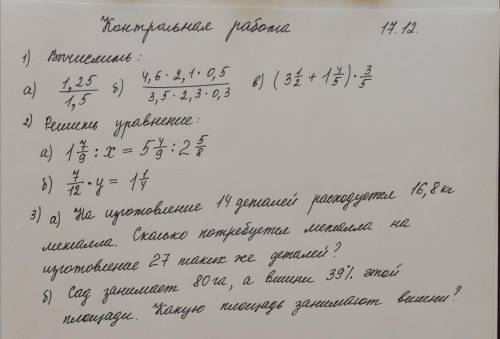 Контрольная работа 17.12.
1) Вычислить:
а) 1,25/1,5 б) 4,6 · 2,1 · 0,5/3,5 · 2,3 · 0,3 в) (3 1/2 + 1 4/5) · 3/5
2) Решить уравнение:
а) 1 7/9 : x = 5 4/9 : 2 5/8
б) 7/12 · y = 1 1/4
3) а) На изготовление 14 деталей расходуется 16,8 кг
металла. Сколько потребуется металла на
изготовление 27 таких же деталей?
б) Сад занимает 80 га, а вишни 39% этой
площади. Какую площадь занимают вишни?